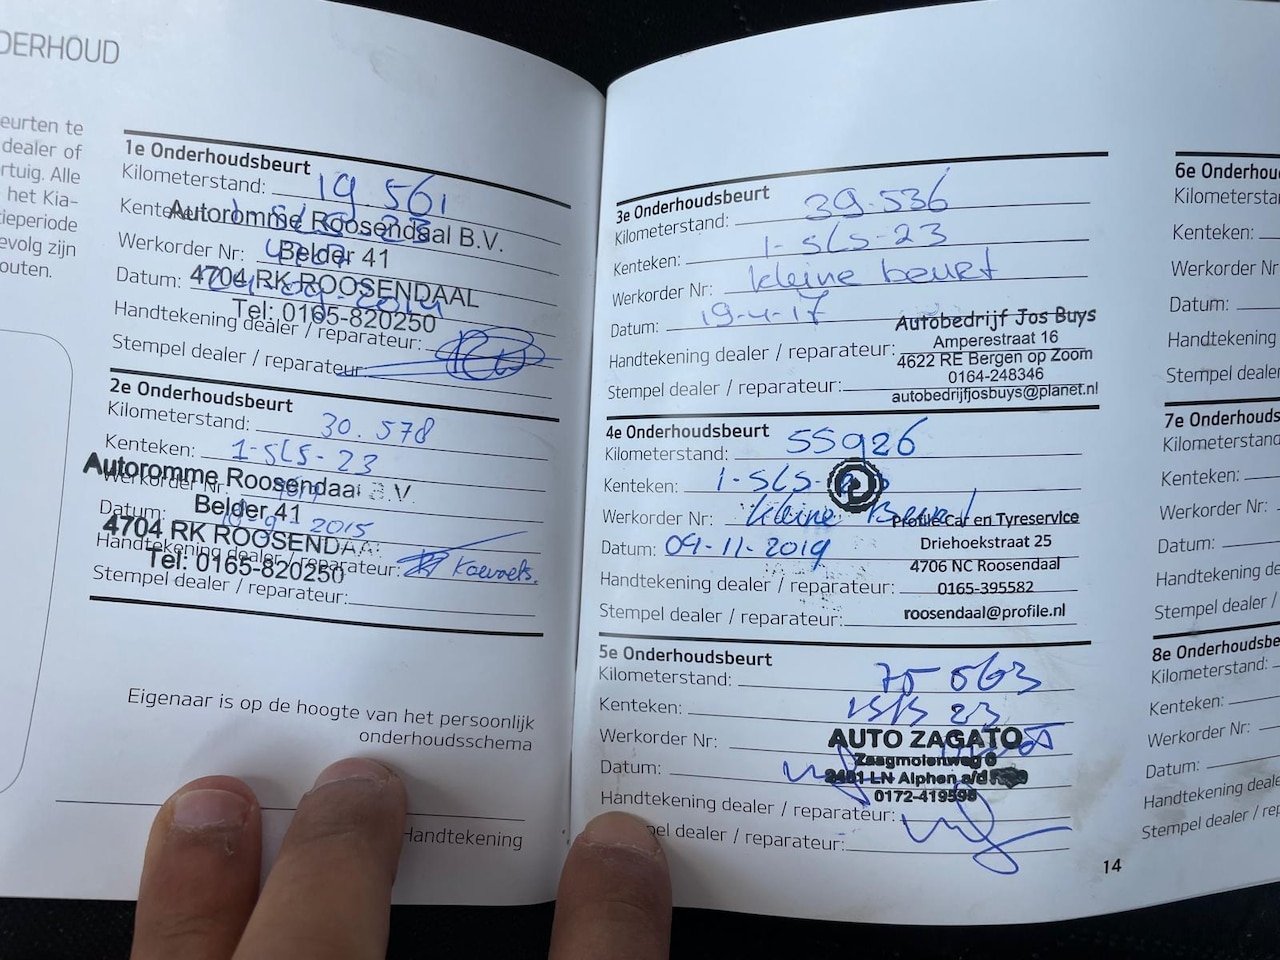 DERHOUD
eurten te
dealer of
rtuig. Alle
het Kia-
tieperiode
evolg zijn
outen.
1e Onderhoudsbeurt
Kilometerstand: 19.561
Kenteken: 1-SLS-23
Autoromme Roosendaal B.V.
Werkorder Nr:
Belder 41
Datum:
4704 RK ROOSENDAAL
Tel: 0165-820250
Handtekening dealer / reparateur:
Stempel dealer / reparateur:
2e Onderhoudsbeurt
Kilometerstand: 30.578
Kenteken: 1-SLS-23
Autoromme Roosendaal B.V.
Werkorder Nr:
Belder 41
Datum: 2015
4704 RK ROOSENDAA
Handtekening dealer / reparateur:
Tel: 0165-820250
Stempel dealer / reparateur:
Eigenaar is op de hoogte van het persoonlijk
onderhoudsschema
Handtekening
3e Onderhoudsbeurt
Kilometerstand: 39.536
Kenteken: 1-SLS-23
Werkorder Nr: kleine beurt
Datum: 19-4-17
Autobedrijf Jos Buys
Amperestraat 16
Handtekening dealer / reparateur:
4622 RE Bergen op Zoom
0164-248346
Stempel dealer / reparateur:
autobedrijfjosbuys@planet.nl
4e Onderhoudsbeurt
Kilometerstand: 55926
Kenteken: 1-SLS-
Werkorder Nr: kleine Beurt
Profile Car en Tyreservice
Driehoekstraat 25
Datum: 04-11-2019
4706 NC Roosendaal
Handtekening dealer / reparateur:
0165-395582
Stempel dealer / reparateur:
roosendaal@profile.nl
5e Onderhoudsbeurt
Kilometerstand: 75 563
Kenteken: 23
Werkorder Nr:
AUTO ZAGATO
Zaagmolenweg 6
Datum:
2401 LN Alphen a/d
0172-419595
Handtekening dealer / reparateur:
pel dealer / reparateur:
14
6e Onderhou
Kilometerstan
Kenteken:
Werkorder Nr
Datum:
Handtekening
Stempel deale
7e Onderhouds
Kilometerstand
Kenteken:
Werkorder Nr:
Datum:
Handtekening de
Stempel dealer /
8e Onderhoudsb
Kilometerstand:
Kenteken:
Werkorder Nr:
Datum:
Handtekening deale
Stempel dealer / rep